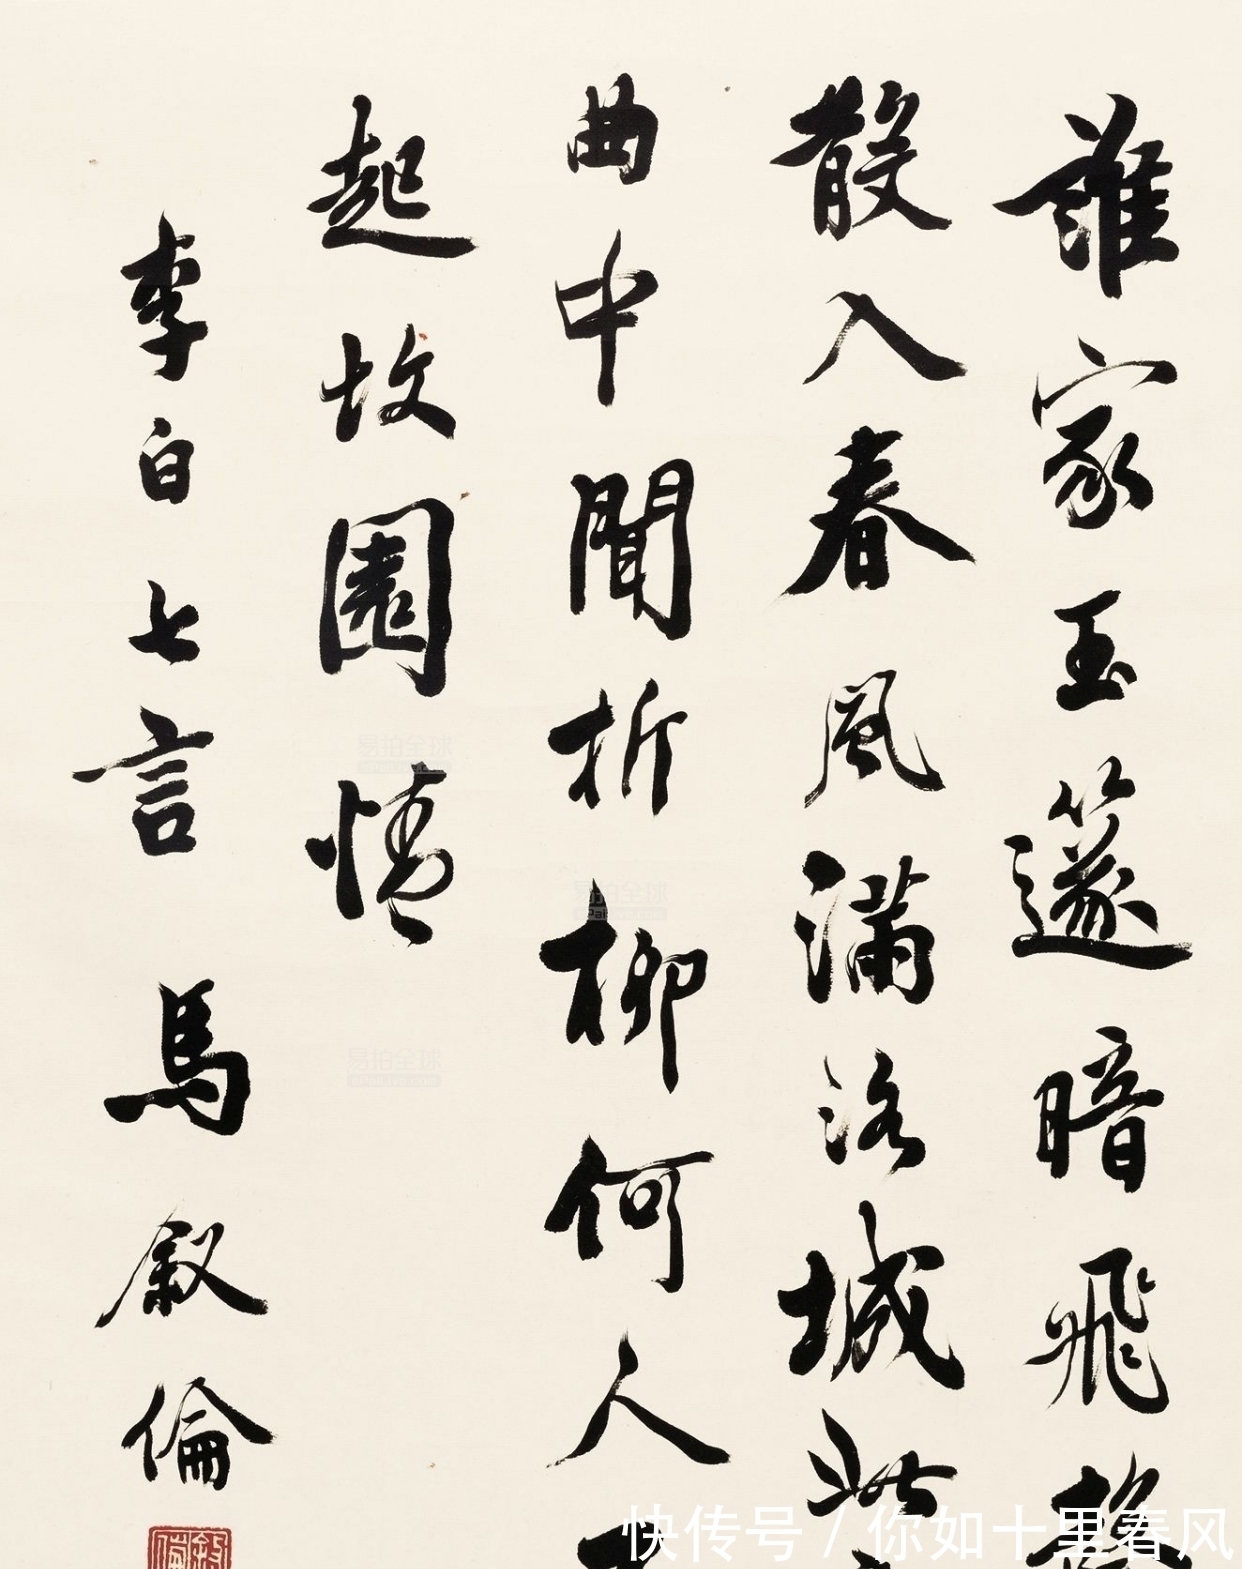 誰家玉篴暗飛聲
散入春風滿洛城此
曲中聞折柳何人不
起故園情
李白七言 馬叙倫
叙倫
快传号 / 你如十里春风
易拍全球
易拍全球
易拍全球